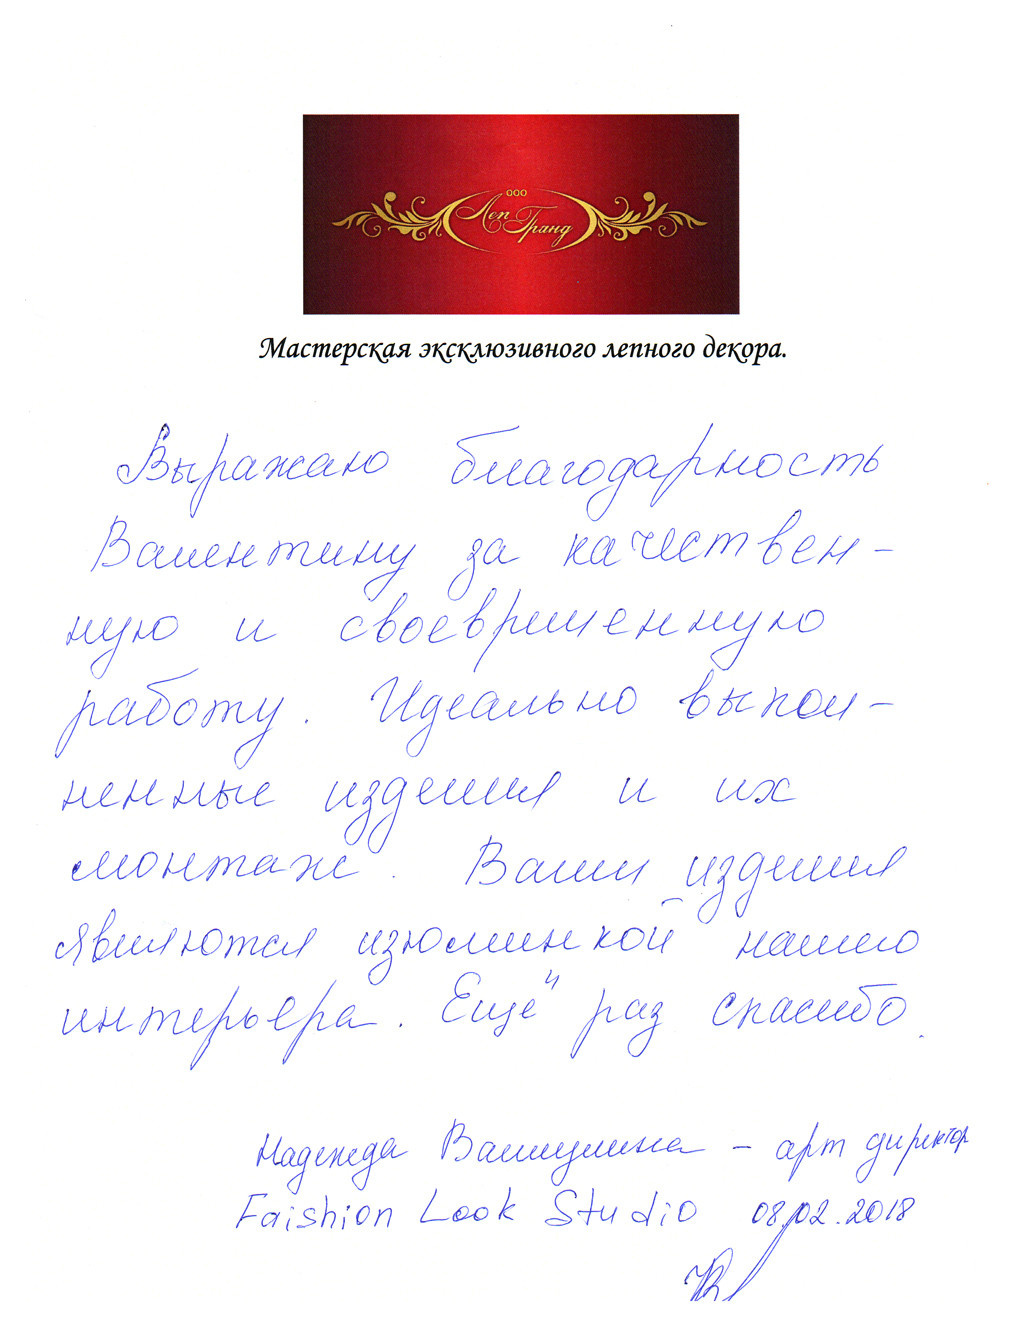 ООО
Леп Гранд
Мастерская эксклюзивного лепного декора.
Выражаю благодарность
Валентину за качествен-
ную и своевременную
работу. Идеально выпол-
ненные изделия и их
монтаж. Ваши изделия
являются изюминкой нашего
интерьера. Ещё раз спасибо.
Надежда — арт директор
Faishion Look Studio 08.02.2018